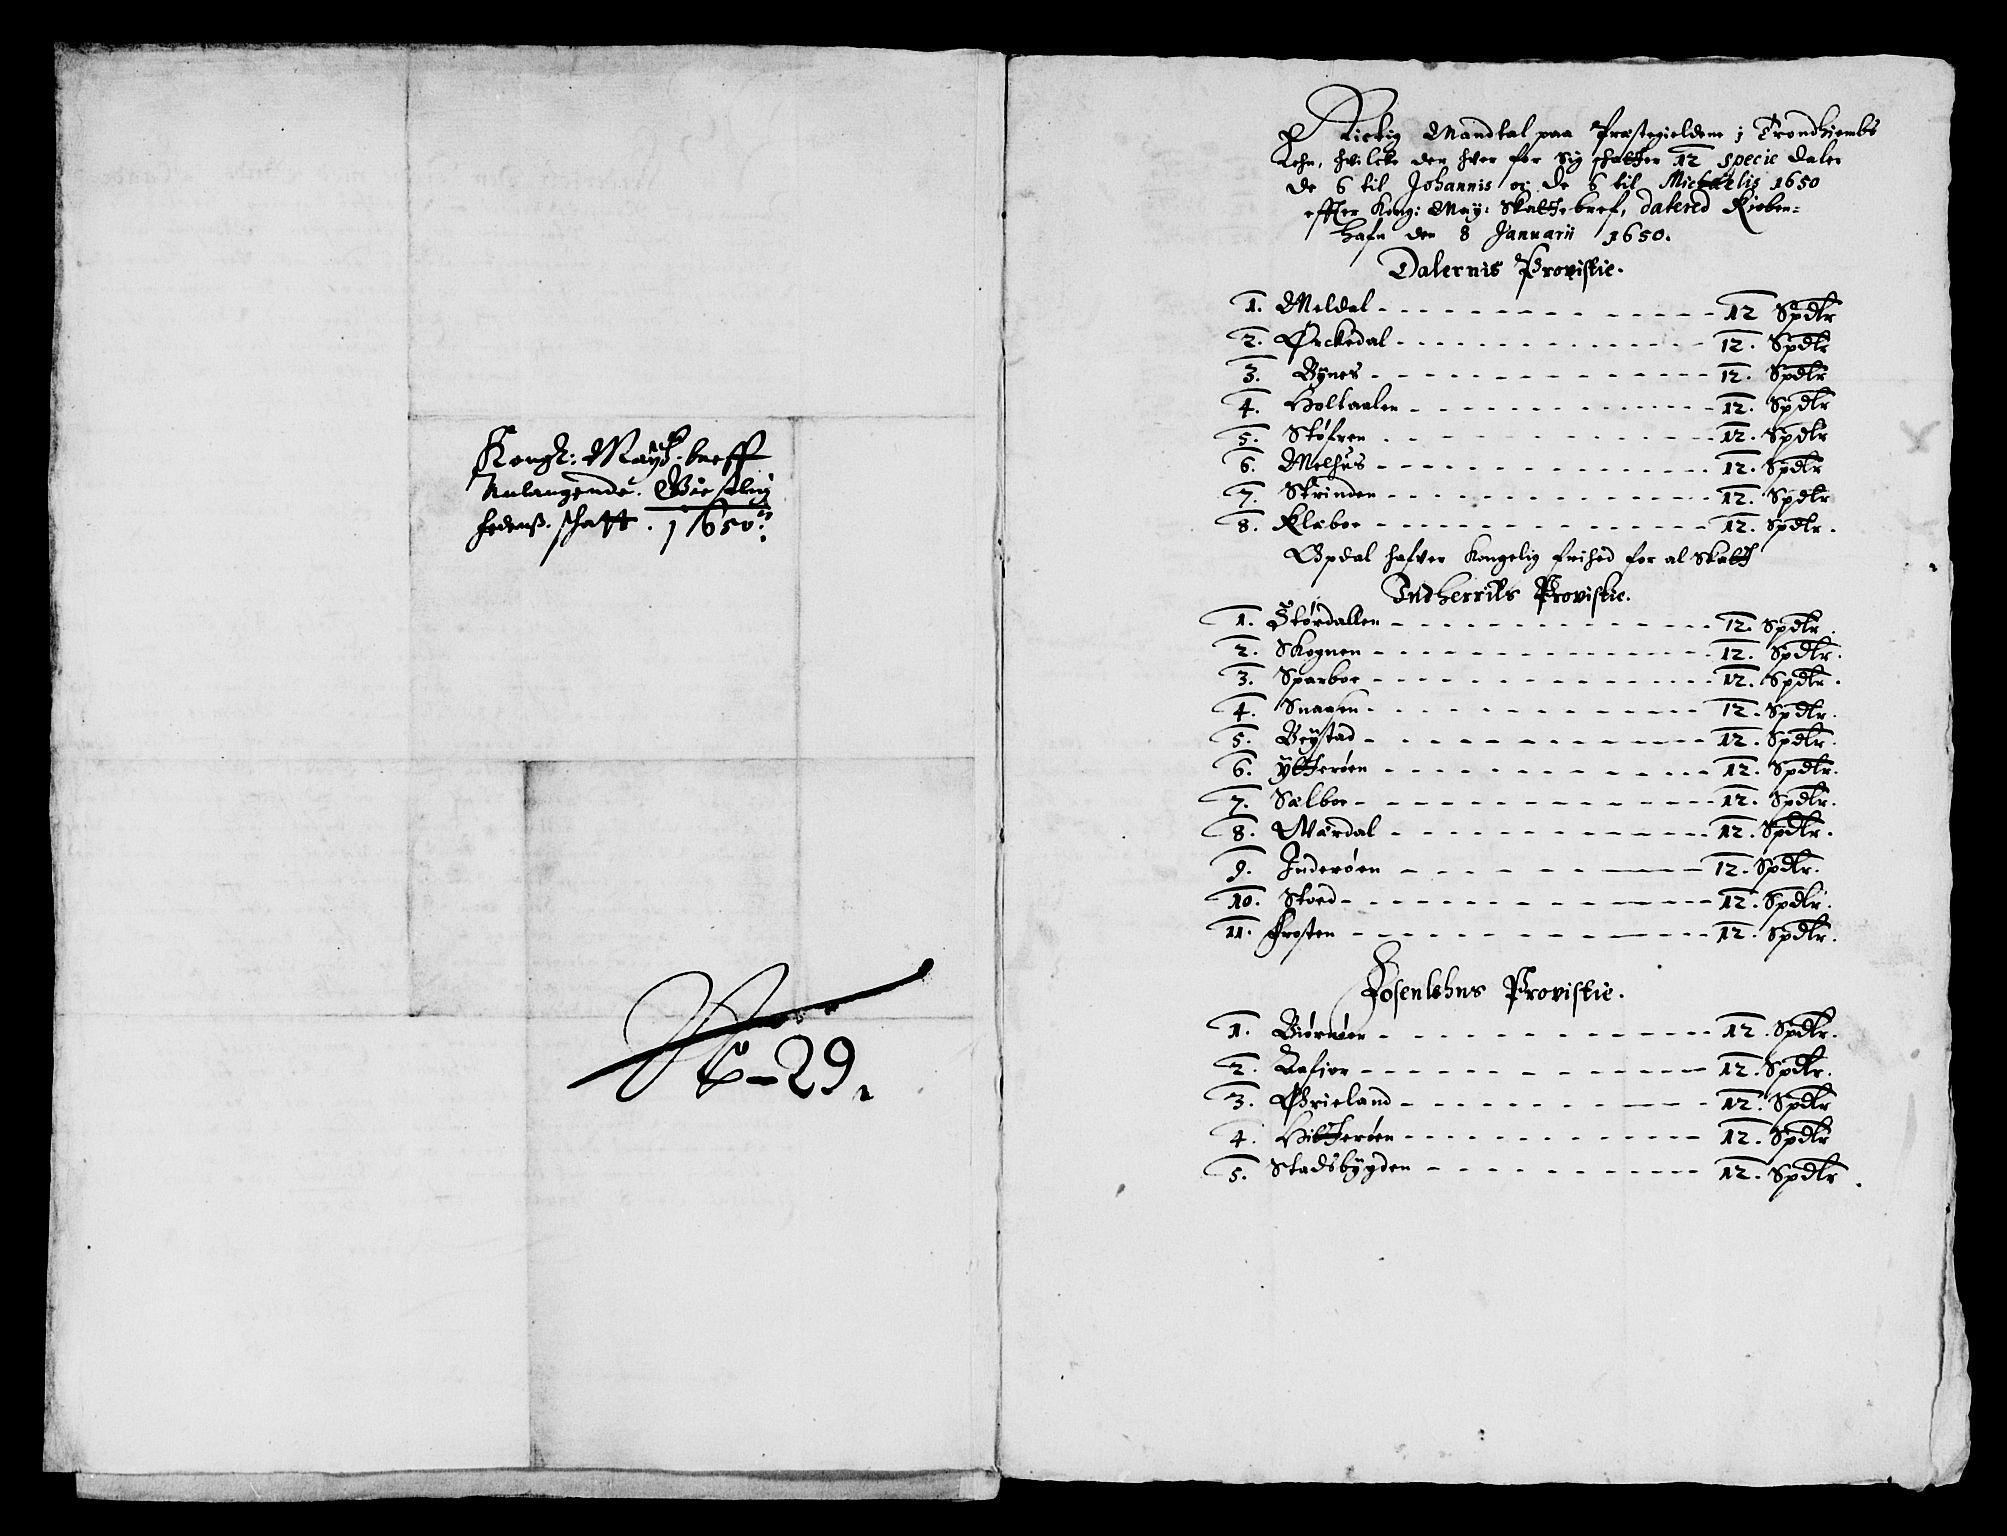 Kongl: Maÿtz. breff
Anlangende. Geistlig
hedenß. schatt. 1650:
No-29.
Rictig Mandtal paa Præstegieldene i Trondhiembs
Lehn, hvilcke der hver for sig schatter 12 specie daler
de 6 til Johannis oc de 6 til Michaelis 1650
effter Kong: May: Skattebref, datered Kiøben-
hafn den 8 Januarii 1650.
Dalernis Provistie.
1. Meldal - - - 12 Spdlr
2. Ørckedal - - - 12. Spdlr
3. Bynes - - - 12. Spdlr
4. Holtaalen - - - 12. Spdlr
5. Støfren - - - 12. Spdlr
6. Melhus - - - 12. Spdlr
7. Strinden - - - 12. Spdlr
8. Klæboe - - - 12. Spdlr.
Opdal hafver Kongelig frihed for al Skatt
Indherrits Provistie.
1. Størdallen - - - 12. Spdlr.
2. Skognen - - - 12. Spdlr.
3. Sparboe - - - 12. Spdlr.
4. Snaasen - - - 12. Spdlr.
5. Beÿstad - - - 12. Spdlr.
6. ÿtterøen - - - 12. Spdlr.
7. Sælboe - - - 12. Spdlr.
8. Værdal - - - 12. Spdlr.
9. Inderøen - - - 12. Spdlr.
10. Stoed - - - 12. Spdlr.
11. Frosten - - - 12. Spdlr.
Fosenlehns Provistie.
1. Biørnøer - - - 12. Spdlr.
2. Aafior - - - 12. Spdlr.
3. Ørieland - - - 12. Spdlr
4. Hitterøen - - - 12. Spdlr
5. Stadsbÿgden - - - 12. Spdlr.